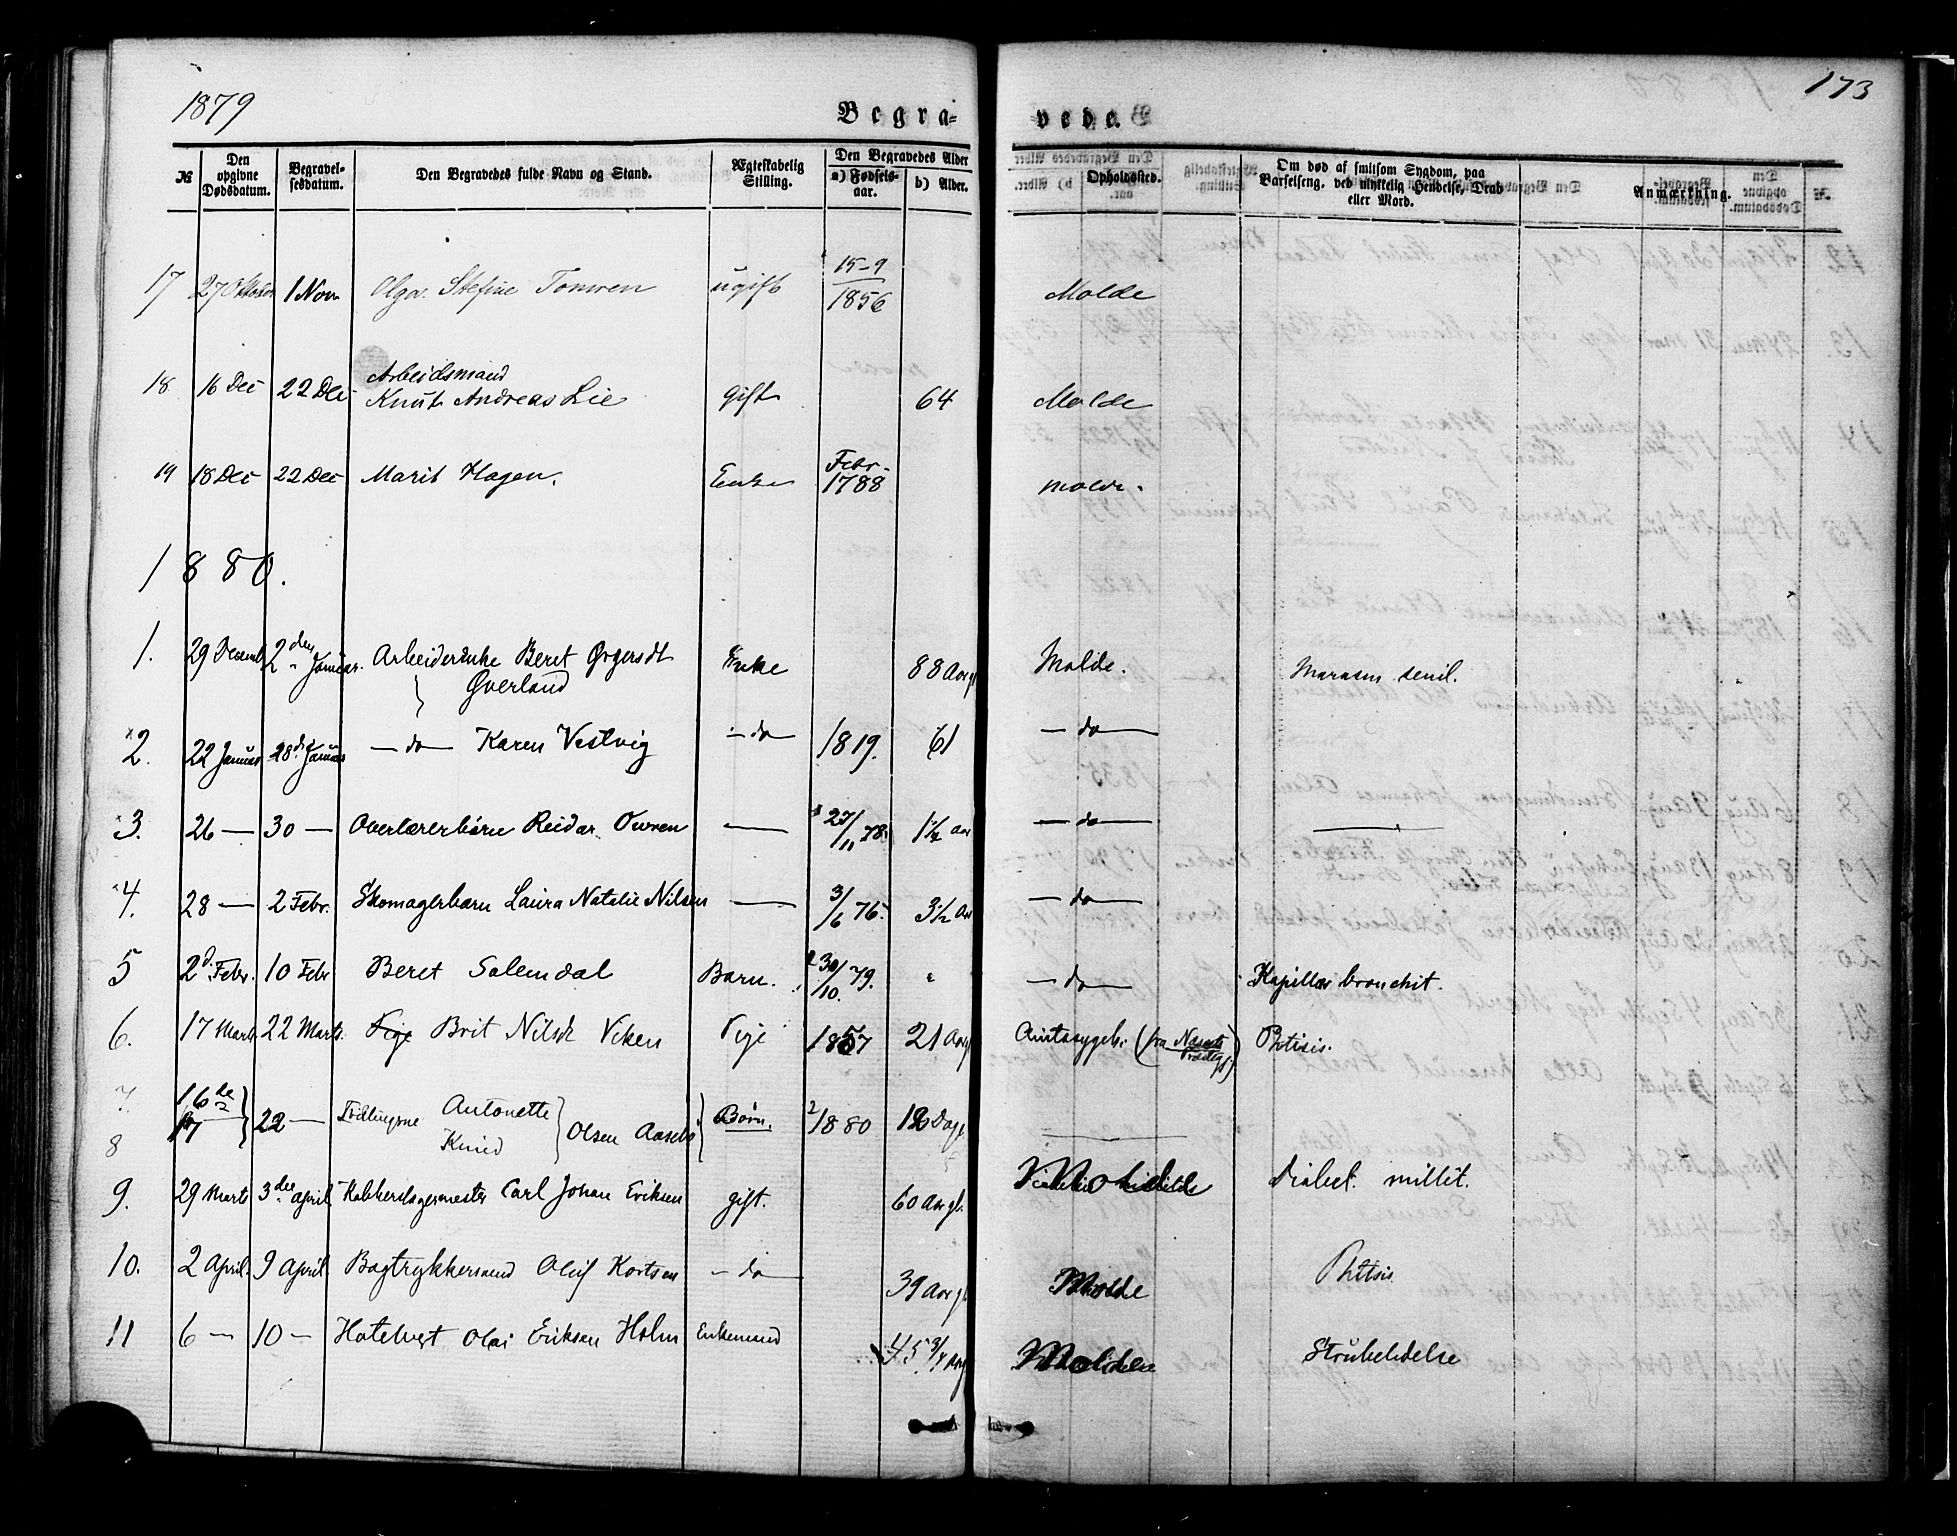 1879
173
Begra-
vede.
№
Den opgivne Dødsdatum.
Begravel-sesdatum.
Den Begravedes fulde Navn og Stand.
Ægteskabelig Stilling.
Den Begravedes Alder
a) Fødsels-aar.
b) Alder.
Opholdssted.
Om død af smitsom Sygdom, paa Barselseng, ved ulykkelig Hendelse, Drab eller Mord.
Anmærkning.
17 27 Oktober 1 Nov Olga Stefine Tonven ugift 15-9 1856 Molde
18 16 Dec 22 Dec Arbeidsmand
Knut Andreas Lie gift 64 Molde
19 18 Dec 22 Dec Marit Hagen. Enke Febr. 1788 Molde.
1880.
1. 29 Decemb. 2den Januar. Arbeiderenke Beret Enke 88 Aar gl Molde. Marasm senil.
Øverland
2. 22 Januar 28de Januar — do — Karen Vestvig — do 1819. 61 — do —
3. 26 — 30 — Overlærerbørn Reidar Owren — 27/11 78. 1¼ Aar — do — —
4. 28 — 2 Febr. Skomagerbarn Laura Natalie Nilsen — 3/6 76. 3½ Aar — do —
5 2d. Febr. 10 Febr Beret Solemdal Barn. 30/10. 79. " — do — Kapillær bronchit.
6. 17 Marts 22 Marts. Pige Brit Nilsd Viken Pige 1857 21 Aar gl Amtssygeh. (fra Nesset Prestegj) Phtisis.
7. 16de 22 — Tvillingerne Antonette Olsen Børn. 1880 Dage
8 17 Knud
9. 29 Marts 3die April Carl Johan Eriksen gift. 60 Aar gl. Diabet. millit.
10. 2 April. 9 April. Bogtrykkersvend Oluf Kortsen — do 39 Aar gl Molde Phtisis
11 6 — 10 — Hotelvert Olai Eriksen Holm Enkemand 45 3/4 Aar Molde Strubelidelse